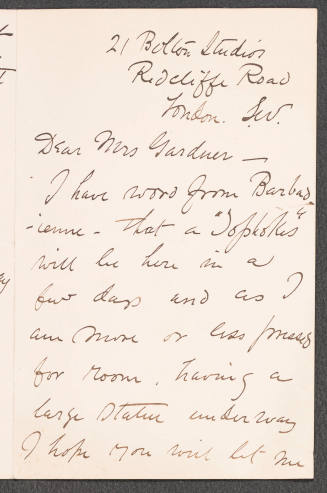 21 Bolton Studios
Redcliffe Road
London. S.W.
Dear Mrs Gardner —
I have word from Barbed
-ienne - that a "Sophokles"
will be here in a
few days and as I
am more or less pressed
for room, having a
large statue underway
I hope you will let me